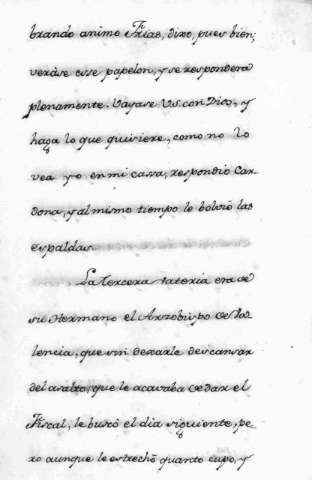 brando animo Frias, dixo, pues bien;
veràse esse papelon, y se responderà
plenamente. Vayase V.S. con Dios, y
haga lo que quisiere, como no lo
vea yo en mi cassa, respondiò Car-
dona, y al mismo tiempo le bolviò las
espaldas.
La tercera bateria era de
su Hermano el Arzobispo de Va-
lencia, que sin dexarle descansar
del asalto, que le acavaba de dar el
Fiscal, le buscò el dia siguiente, pe-
ro aunque le estrechò quanto cupo, y